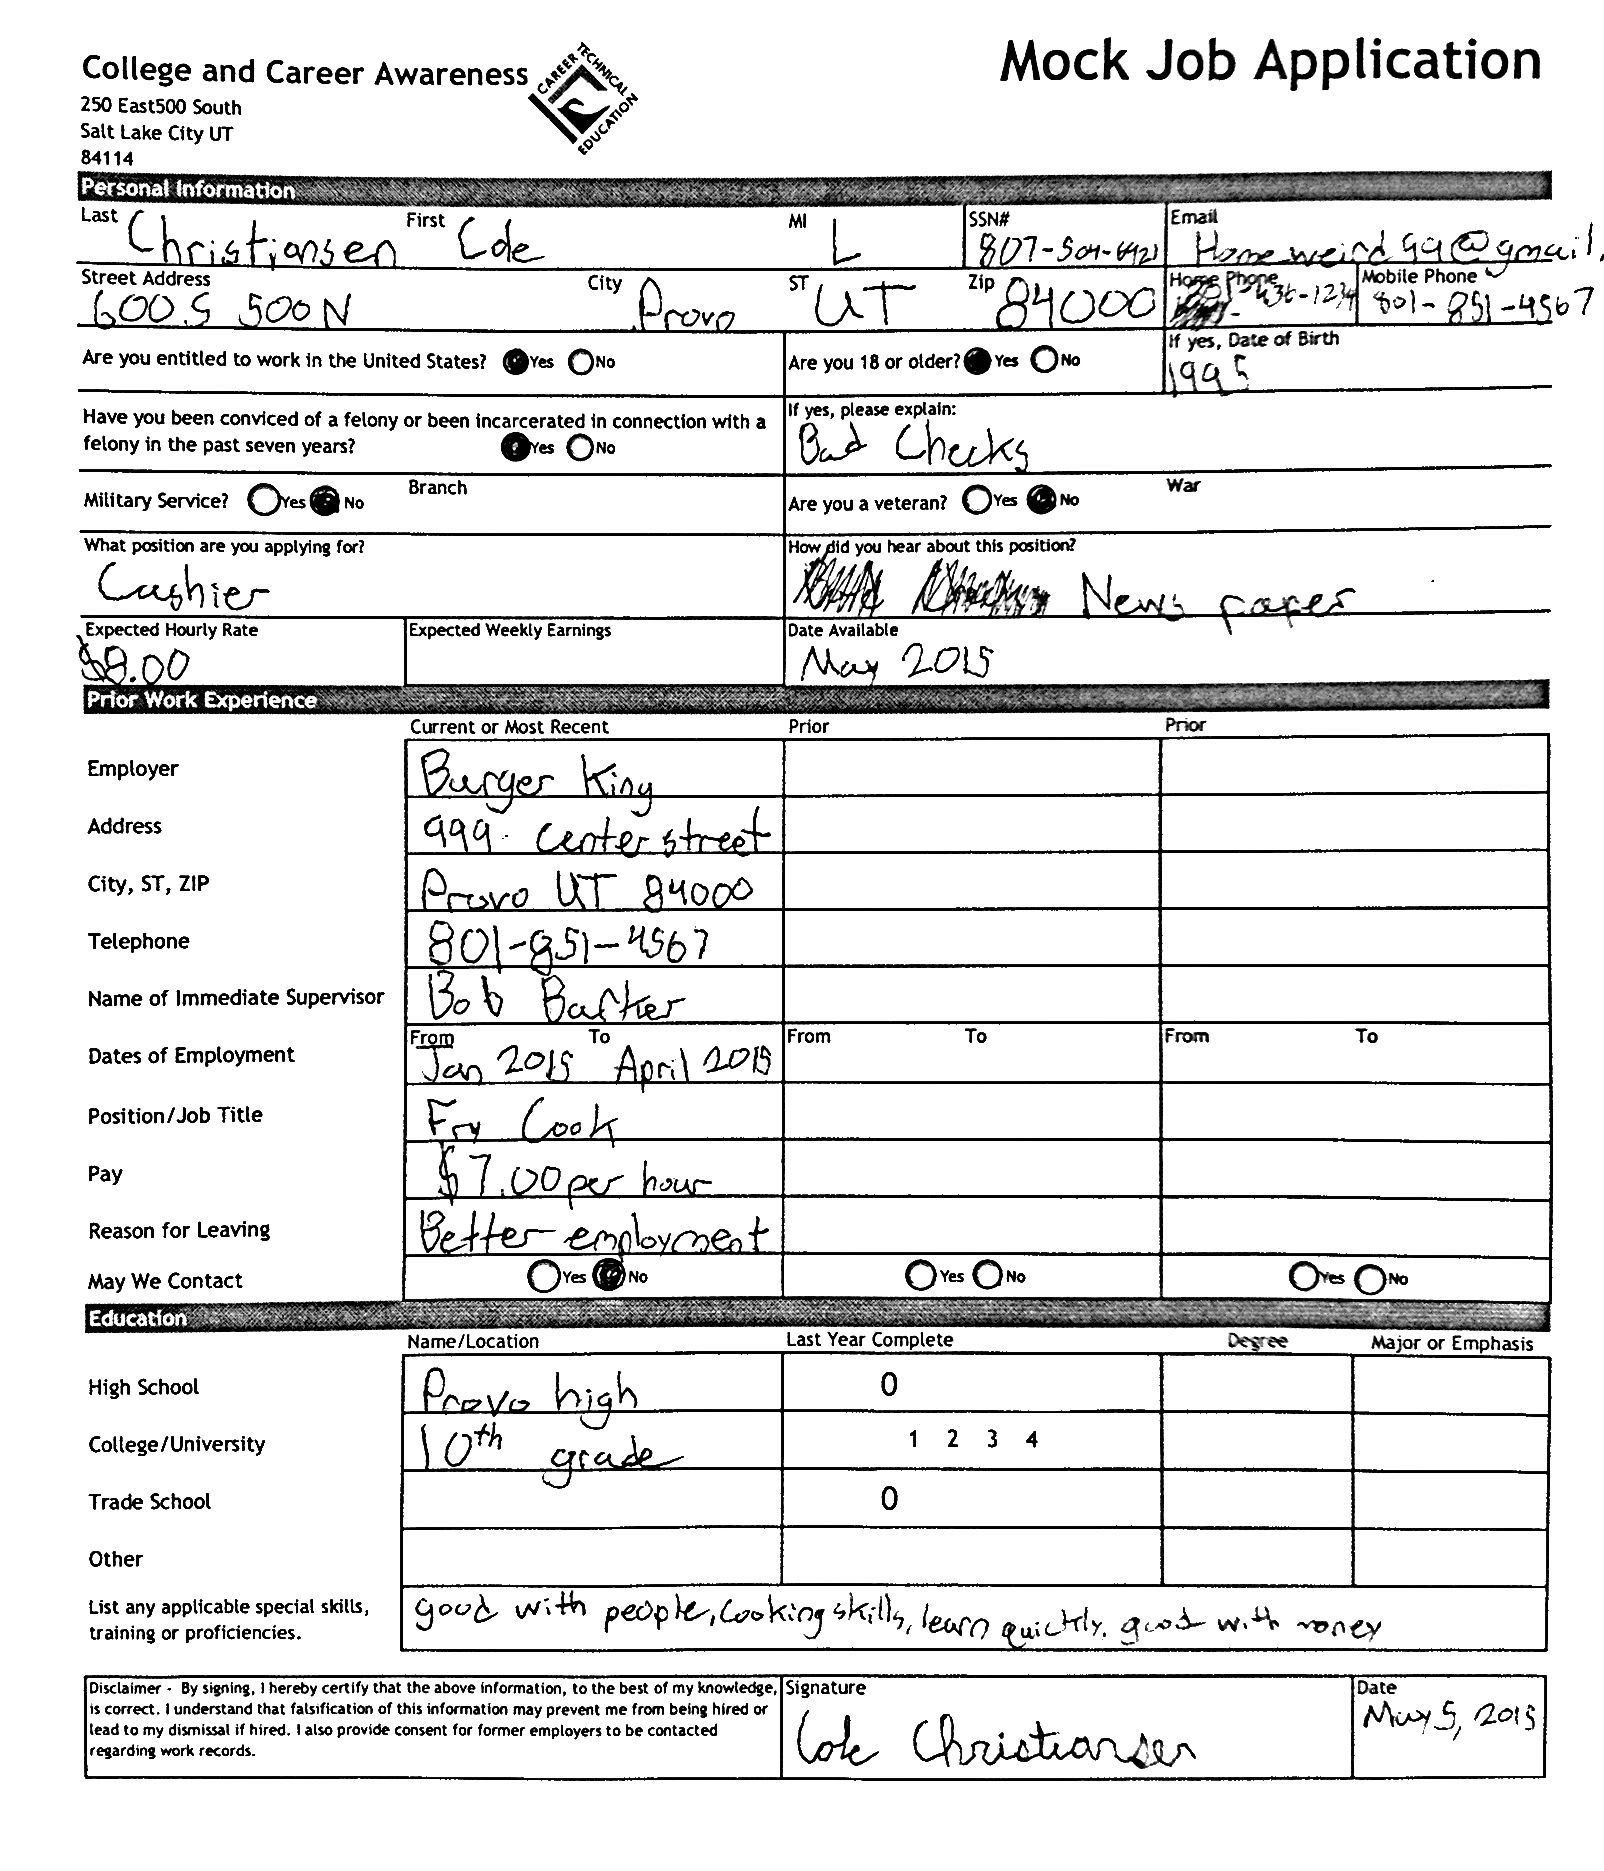 College and Career Awareness
CAREER TECHNICAL EDUCATION
Mock Job Application
250 East500 South
Salt Lake City UT
84114
Personal Information
Last Christiansen First Cole MI L SSN# Email Homeweird99@gmail.
Street Address 600 S 500 N City Provo ST UT Zip 84000 Home Phone 436-1234 Mobile Phone 801-851-4567
Are you entitled to work in the United States? Yes No Are you 18 or older? Yes No If yes, Date of Birth 1995
Have you been conviced of a felony or been incarcerated in connection with a
felony in the past seven years? Yes No If yes, please explain: Bad Checks
Military Service? Yes No Branch Are you a veteran? Yes No War
What position are you applying for? How did you hear about this position?
Cashier News paper
Expected Hourly Rate Expected Weekly Earnings Date Available
$8.00 May 2015
Prior Work Experience
Current or Most Recent Prior Prior
Employer Burger King
Address 999 center street
City, ST, ZIP Provo UT 84000
Telephone 801-851-4567
Name of Immediate Supervisor Bob Barker
Dates of Employment From Jan 2015 To April 2015 From To From To
Position/Job Title Fry Cook
Pay $7.00 per hour
Reason for Leaving Better employment
May We Contact Yes No Yes No Yes No
Education
Name/Location Last Year Complete Degree Major or Emphasis
High School Provo high 0
College/University 10th grade 1 2 3 4
Trade School 0
Other
List any applicable special skills,
training or proficiencies. good with people, cooking skills, learn quickly. good with money
Disclaimer - By signing, I hereby certify that the above information, to the best of my knowledge,
is correct. I understand that falsification of this information may prevent me from being hired or
lead to my dismissal if hired. I also provide consent for former employers to be contacted
regarding work records.
Signature Cole Christiansen
Date May 5, 2015